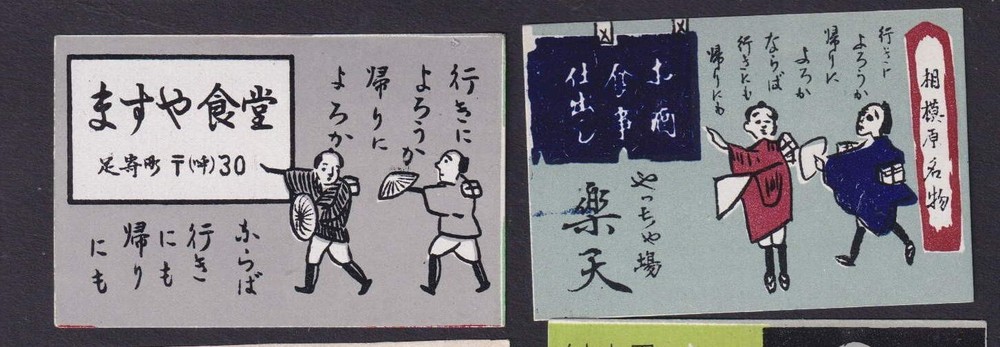 ますや食堂
足寄町 〒(呼)30
行きに
よろうか
帰りに
よろか
ならば
行き
にも
帰り
にも
相模原名物
行きに
よろうか
帰りに
よろか
ならば
行きにも
帰りにも
お酒
食事
仕出し
やっちゃ場
楽天